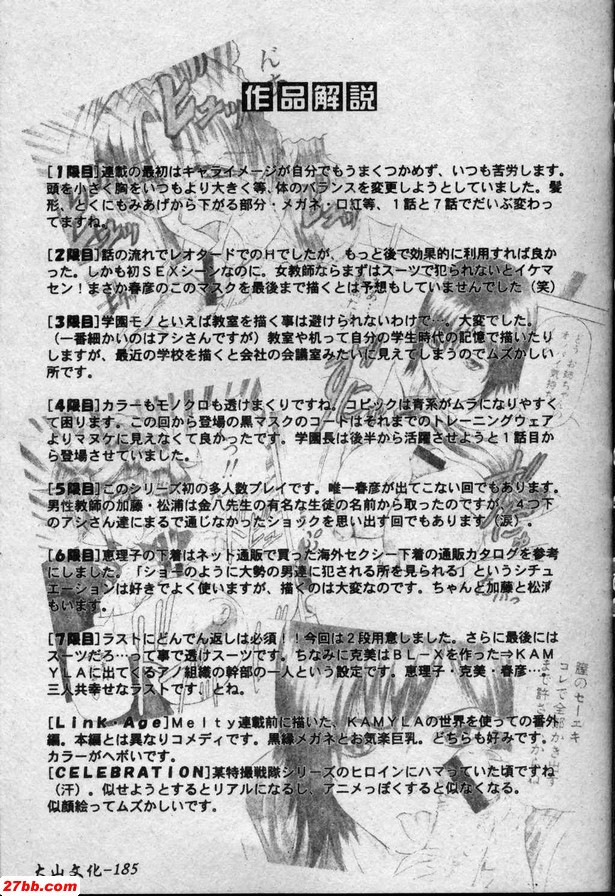 作品解説
[1限目]連載の最初はキャライメージが自分でもうまくつかめず、いつも苦労します。
頭を小さく胸をいつもより大きく等、体のバランスを変更しようとしていました。髪
形、とくにもみあげから下がる部分・メガネ・口紅等、1話と7話でだいぶ変わっ
てますね。
[2限目]話の流れでレオタードでのHでしたが、もっと後で効果的に利用すれば良か
った。しかも初SEXシーンなのに。女教師ならまずはスーツで犯られないとイケマ
セン!まさか春彦のこのマスクを最後まで描くとは予想もしていませんでした(笑)
[3限目]学園モノといえば教室を描く事は避けられないわけで…。大変でした。
(一番細かいのはアシさんですが)教室や机って自分の学生時代の記憶で描いたり
しますが、最近の学校を描くと会社の会議室みたいに見えてしまうのでムズかしい
所です。
[4限目]カラーもモノクロも透けまくりですね。コピックは青系がムラになりやすく
て困ります。この回から登場の黒マスクのコートはそれまでのトレーニングウェア
よりマヌケに見えなくて良かったです。学園長は後半から活躍させようと1話目か
ら登場させていました。
[5限目]このシリーズ初の多人数プレイです。唯一春彦が出てこない回でもあります。
男性教師の加藤・松浦は金八先生の有名な生徒の名前から取ったのですが、4つ下
のアシさん達にまるで通じなかったショックを思い出す回でもあります(涙)。
[6限目]恵理子の下着はネット通販で買った海外セクシー下着の通販カタログを参考
にしました。「ショーのように大勢の男達に犯される所を見られる」というシチュ
エーションは好きでよく使いますが、描くのは大変なのです。ちゃんと加藤と松浦
もいます。
[7限目]ラストにどんでん返しは必須!!今回は2段用意しました。さらに最後には
スーツだろ…って事で透けスーツです。ちなみに克美はBL-Xを作った⇒KAM
YLAに出てくるアノ組織の幹部の一人という設定です。恵理子・克美・春彦…。
三人共幸せなラストです。とね。
[Link・Age]Melty連載前に描いた、KAMYLAの世界を使っての番外
編。本編とは異なりコメディです。黒縁メガネとお気楽巨乳。どちらも好みです。
カラーがヘボいです。
[CELEBRATION]某特撮戦隊シリーズのヒロインにハマっていた頃ですね
(汗)。似せようとするとリアルになるし、アニメっぽくすると似なくなる。
似顔絵ってムズかしいです。
大山文化-185
27bb.com